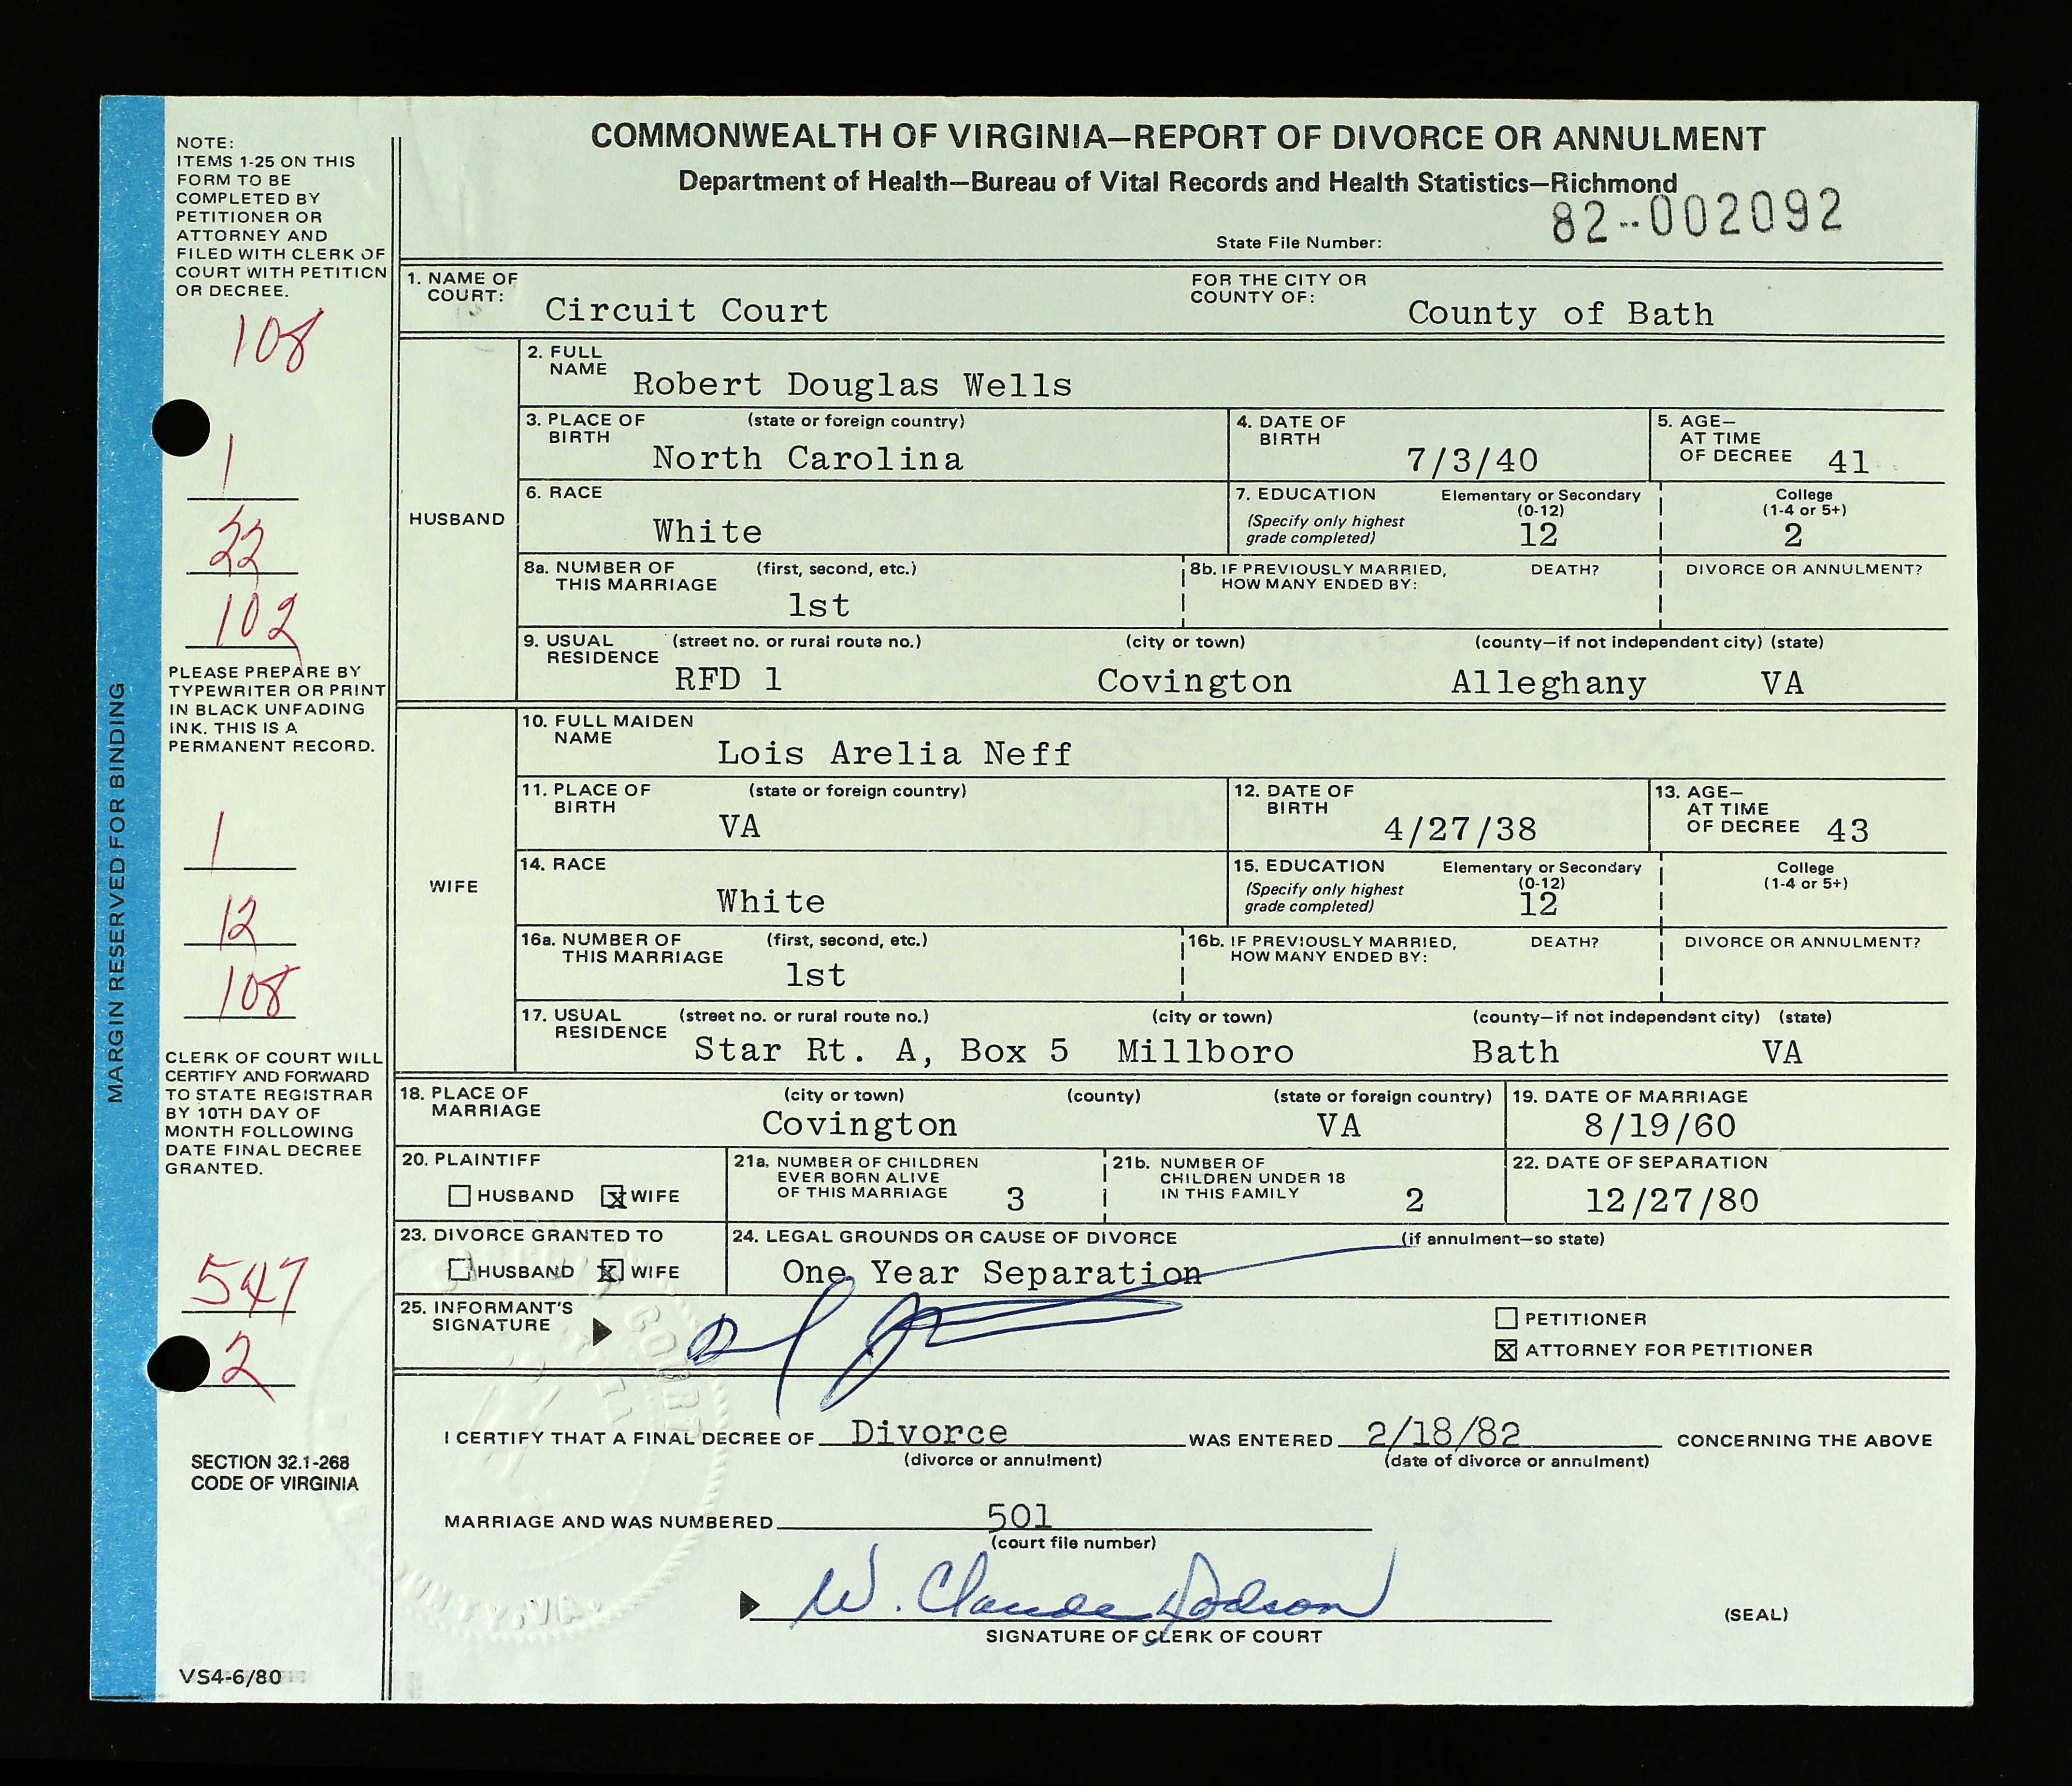 COMMONWEALTH OF VIRGINIA—REPORT OF DIVORCE OR ANNULMENT
Department of Health—Bureau of Vital Records and Health Statistics—Richmond
State File Number: 82--002092
NOTE:
ITEMS 1-25 ON THIS
FORM TO BE
COMPLETED BY
PETITIONER OR
ATTORNEY AND
FILED WITH CLERK OF
COURT WITH PETITION
OR DECREE.
108
1
22
102
PLEASE PREPARE BY
TYPEWRITER OR PRINT
IN BLACK UNFADING
INK. THIS IS A
PERMANENT RECORD.
1
12
108
CLERK OF COURT WILL
CERTIFY AND FORWARD
TO STATE REGISTRAR
BY 10TH DAY OF
MONTH FOLLOWING
DATE FINAL DECREE
GRANTED.
547
2
SECTION 32.1-268
CODE OF VIRGINIA
VS4-6/80
MARGIN RESERVED FOR BINDING
1. NAME OF COURT: Circuit Court FOR THE CITY OR COUNTY OF: County of Bath
HUSBAND
2. FULL NAME Robert Douglas Wells
3. PLACE OF BIRTH (state or foreign country) North Carolina
4. DATE OF BIRTH 7/3/40
5. AGE— AT TIME OF DECREE 41
6. RACE White
7. EDUCATION (Specify only highest grade completed) Elementary or Secondary (0-12) 12 College (1-4 or 5+) 2
8a. NUMBER OF THIS MARRIAGE (first, second, etc.) 1st
8b. IF PREVIOUSLY MARRIED, HOW MANY ENDED BY: DEATH? DIVORCE OR ANNULMENT?
9. USUAL RESIDENCE (street no. or rural route no.) (city or town) (county—if not independent city) (state)
RFD 1 Covington Alleghany VA
WIFE
10. FULL MAIDEN NAME Lois Arelia Neff
11. PLACE OF BIRTH (state or foreign country) VA
12. DATE OF BIRTH 4/27/38
13. AGE— AT TIME OF DECREE 43
14. RACE White
15. EDUCATION (Specify only highest grade completed) Elementary or Secondary (0-12) 12 College (1-4 or 5+)
16a. NUMBER OF THIS MARRIAGE (first, second, etc.) 1st
16b. IF PREVIOUSLY MARRIED, HOW MANY ENDED BY: DEATH? DIVORCE OR ANNULMENT?
17. USUAL RESIDENCE (street no. or rural route no.) (city or town) (county—if not independent city) (state)
Star Rt. A, Box 5 Millboro Bath VA
18. PLACE OF MARRIAGE (city or town) (county) (state or foreign country)
Covington VA
19. DATE OF MARRIAGE 8/19/60
20. PLAINTIFF
HUSBAND X WIFE
21a. NUMBER OF CHILDREN EVER BORN ALIVE OF THIS MARRIAGE 3
21b. NUMBER OF CHILDREN UNDER 18 IN THIS FAMILY 2
22. DATE OF SEPARATION 12/27/80
23. DIVORCE GRANTED TO
HUSBAND X WIFE
24. LEGAL GROUNDS OR CAUSE OF DIVORCE (if annulment—so state)
One Year Separation
25. INFORMANT'S SIGNATURE
PETITIONER
X ATTORNEY FOR PETITIONER
I CERTIFY THAT A FINAL DECREE OF Divorce WAS ENTERED 2/18/82 CONCERNING THE ABOVE
(divorce or annulment) (date of divorce or annulment)
MARRIAGE AND WAS NUMBERED 501
(court file number)
W. Claude Dodson
SIGNATURE OF CLERK OF COURT
(SEAL)